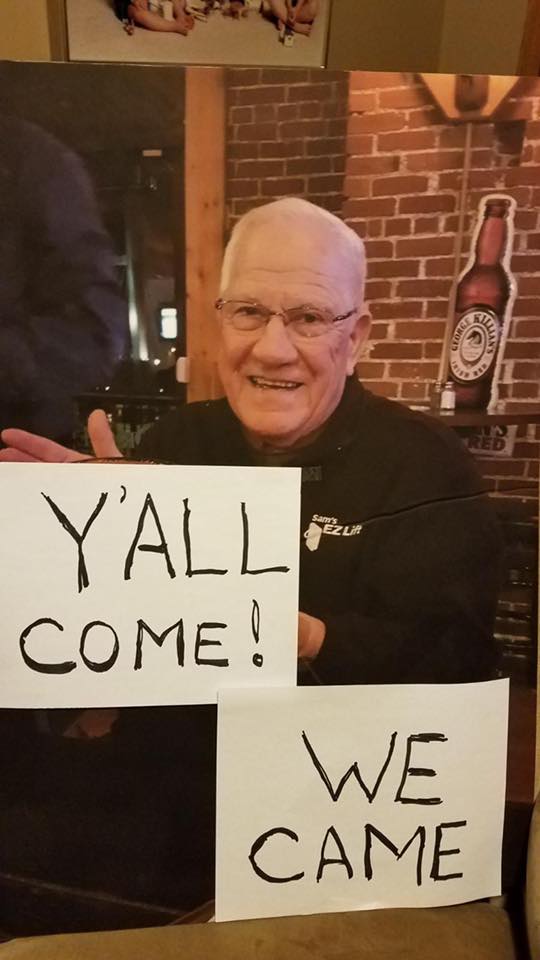 GEORGE KILLIAN'S
IRISH RED
RED
Sam's
EZ Lift
Y'ALL
COME!
WE
CAME